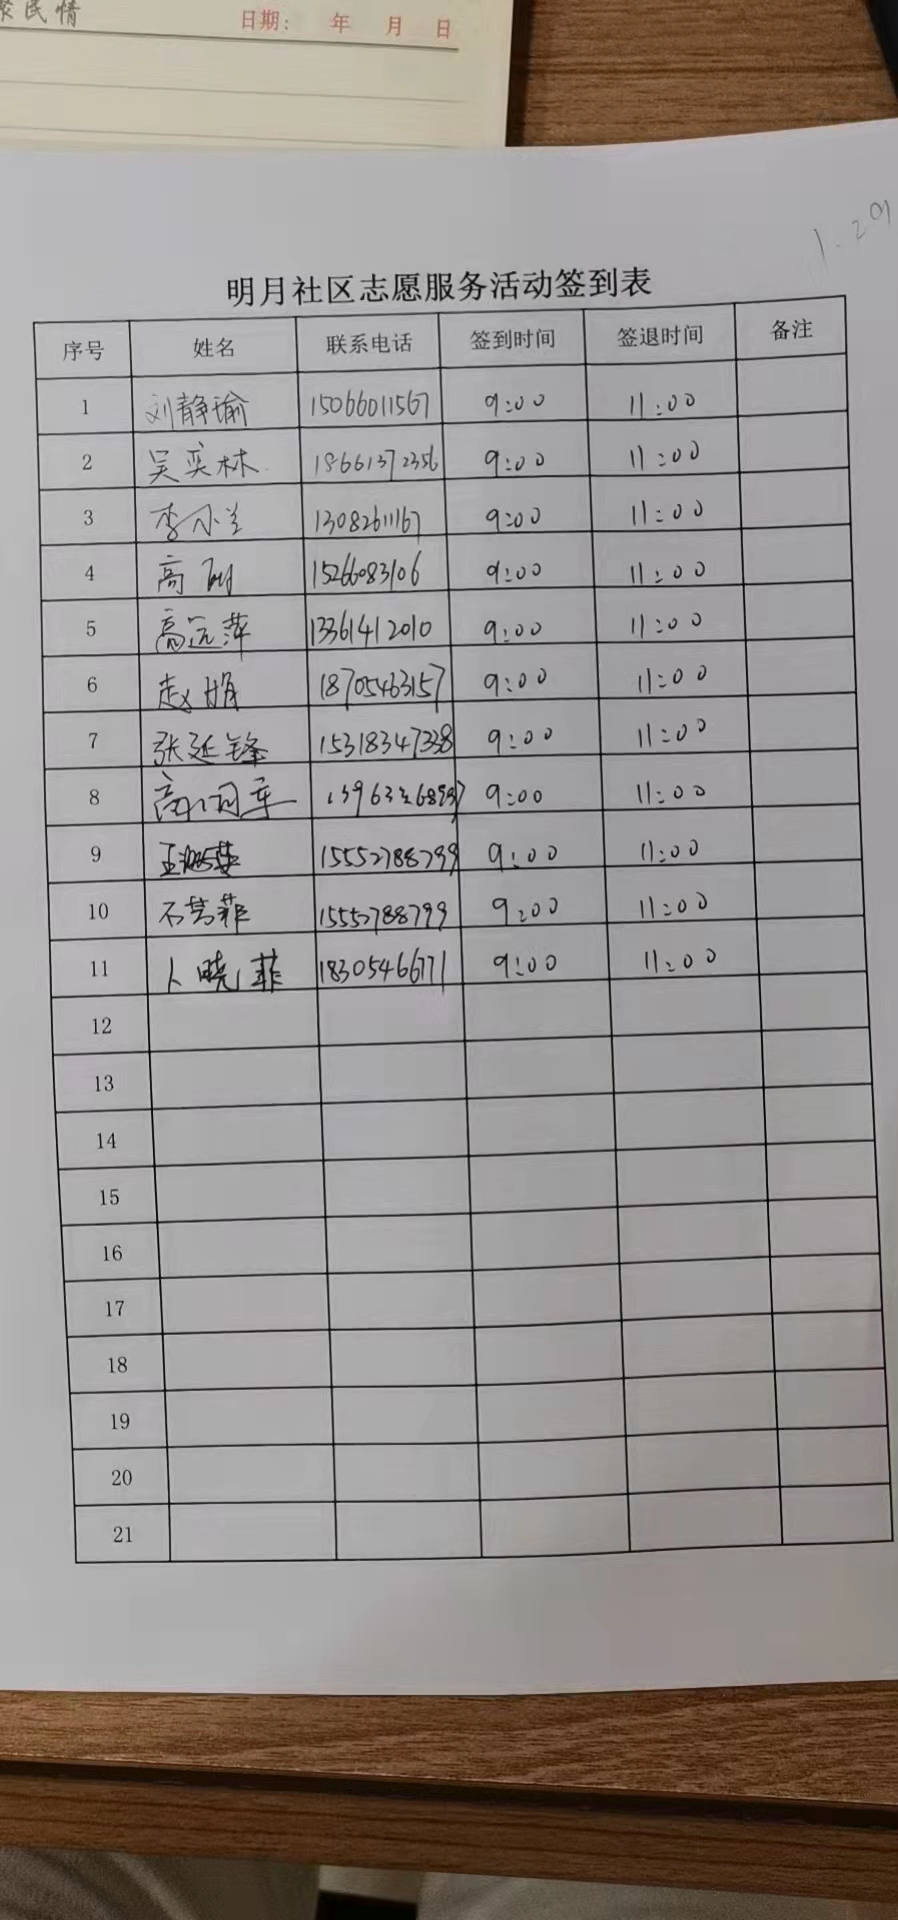 聚民情
日期： 年 月 日
1.29
明月社区志愿服务活动签到表
序号 姓名 联系电话 签到时间 签退时间 备注
1 刘静瑜 15066011567 9:00 11:00
2 吴奕林 18661372356 9:00 11:00
3 李小兰 1308261167 9:00 11:00
4 高 15266083106 9:00 11:00
5 高远萍 13361412010 9:00 11:00
6 赵娟 18705463157 9:00 11:00
7 张延锋 15318347338 9:00 11:00
8 9:00 11:00
9 15552788799 9:00 11:00
10 石芸菲 15552788799 9:00 11:00
11 卜晓菲 18305466771 9:00 11:00
12
13
14
15
16
17
18
19
20
21